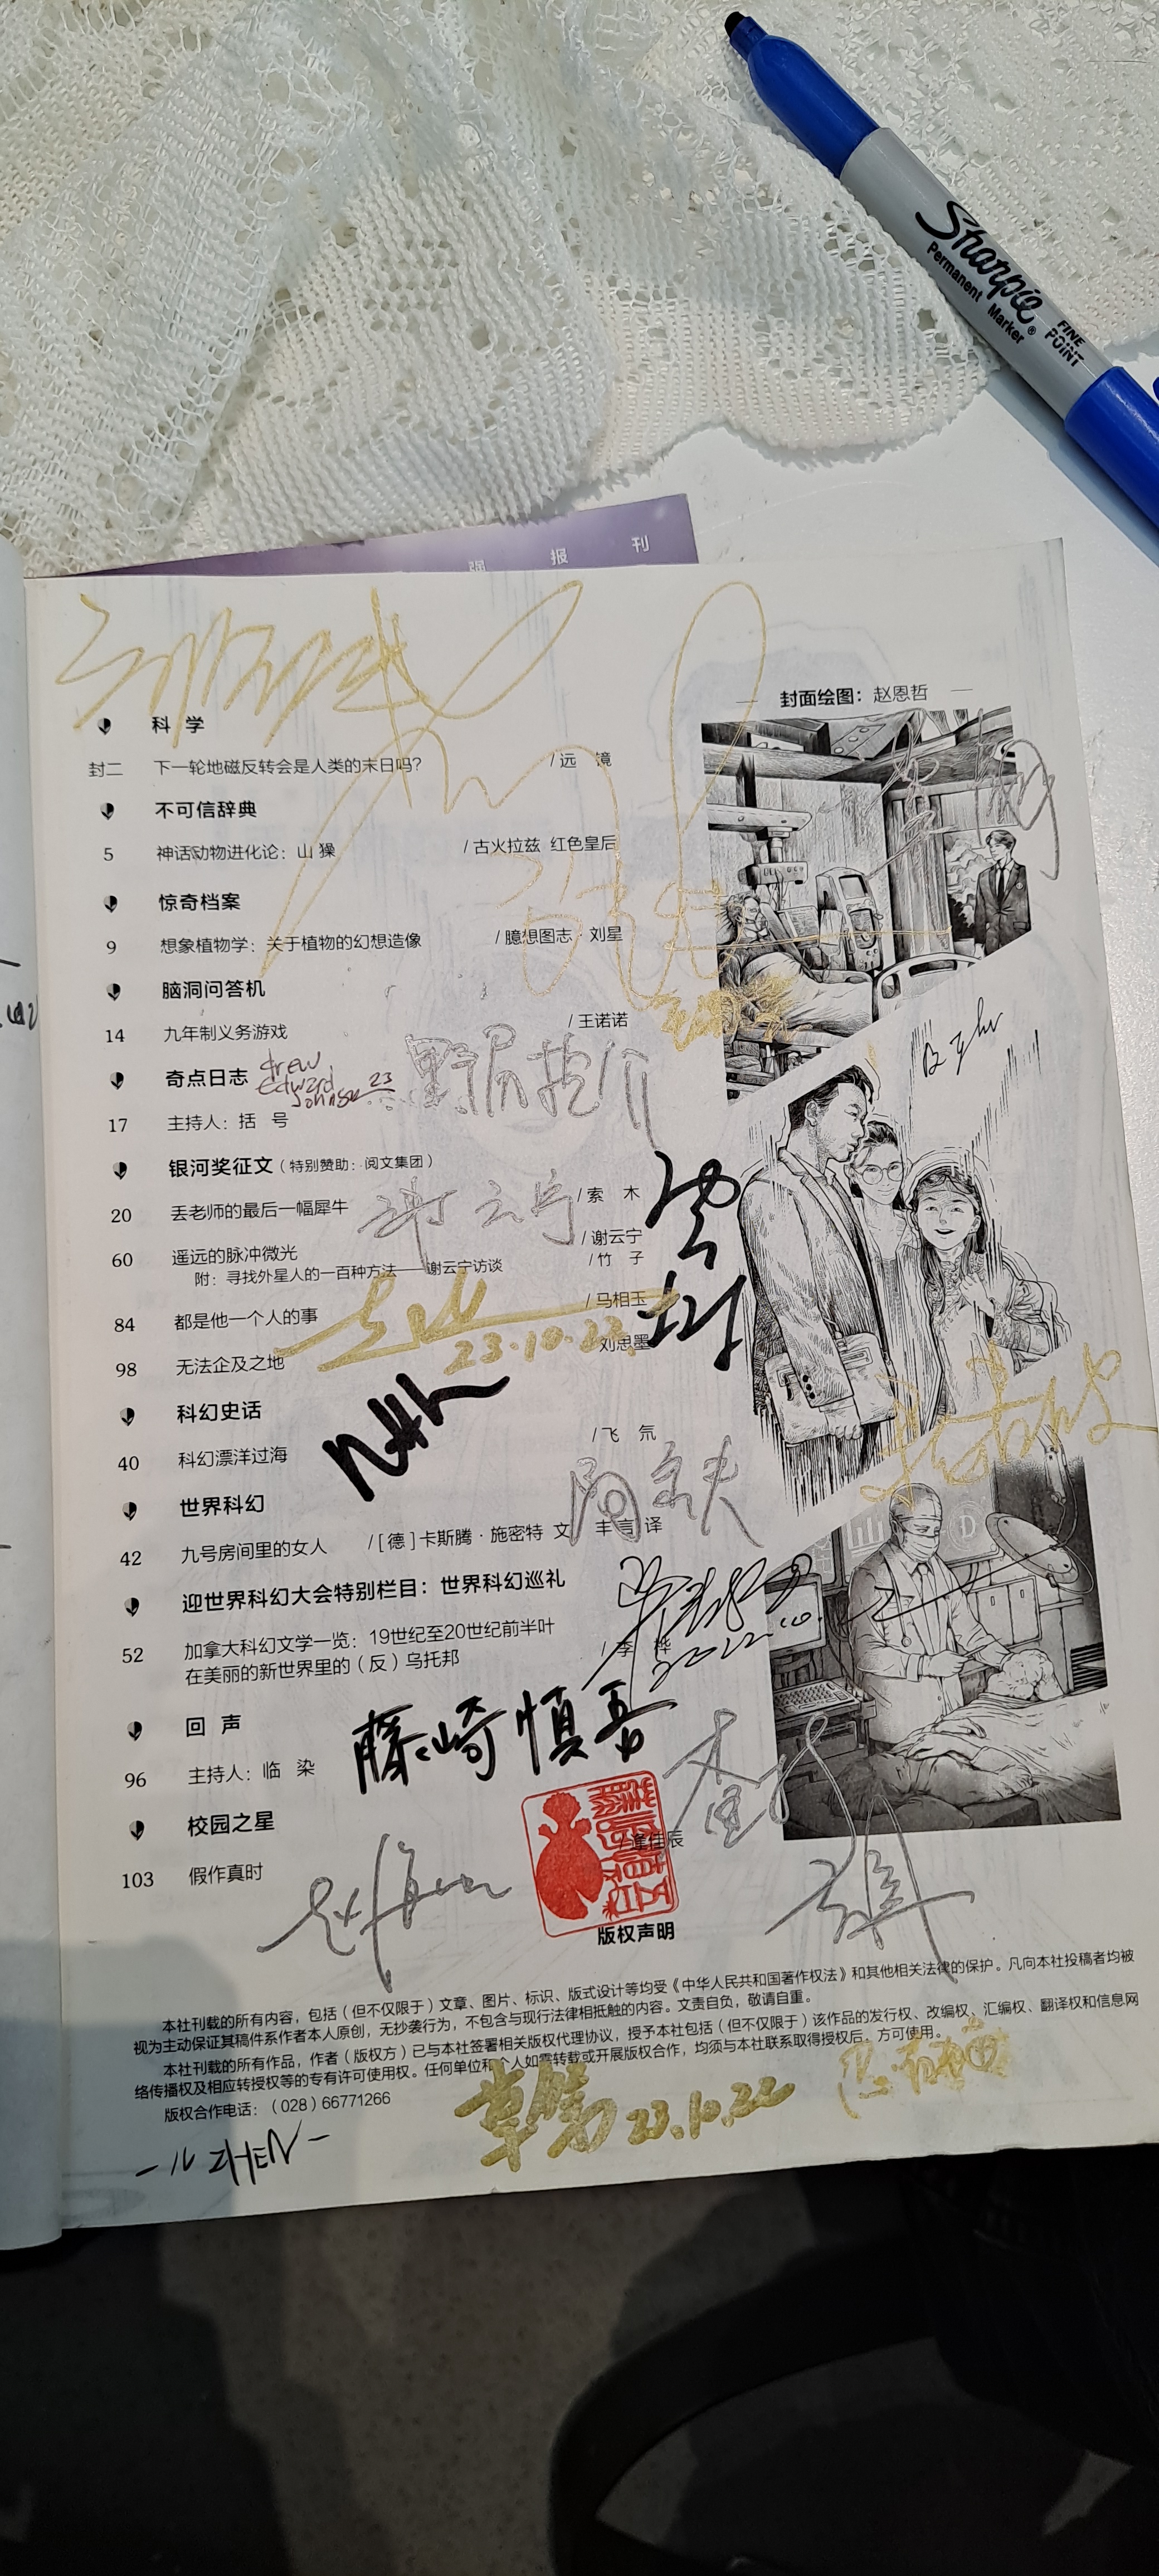 Sharpie®
Permanent Marker
FINE
POINT
强 报 刊
封面绘图：赵恩哲
科 学
封二 下一轮地磁反转会是人类的末日吗？ /远 镜
不可信辞典
5 神话动物进化论：山㺑 /古火拉兹 红色皇后
惊奇档案
9 想象植物学：关于植物的幻想造像 /臆想图志·刘星
脑洞问答机
14 九年制义务游戏 /王诺诺
奇点日志
drew
Edward
Johnson 23
野尻抱介
17 主持人：括 号
银河奖征文（特别赞助：阅文集团）
20 丢老师的最后一幅犀牛 /索 木
谢云宁
60 遥远的脉冲微光 /谢云宁
附：寻找外星人的一百种方法——谢云宁访谈 /竹 子
84 都是他一个人的事 /马相玉
23.10.22
98 无法企及之地 刘思墨
科幻史话
40 科幻漂洋过海 /飞 氘
世界科幻
42 九号房间里的女人 /[德]卡斯腾·施密特 文 丰言 译
迎世界科幻大会特别栏目：世界科幻巡礼
52 加拿大科幻文学一览：19世纪至20世纪前半叶
在美丽的新世界里的（反）乌托邦 /李 烨
回 声
藤崎慎吾
96 主持人：临 染
校园之星
103 假作真时 /逄佳辰
版权声明
本社刊载的所有内容，包括（但不仅限于）文章、图片、标识、版式设计等均受《中华人民共和国著作权法》和其他相关法律的保护。凡向本社投稿者均被
视为主动保证其稿件系作者本人原创，无抄袭行为，不包含与现行法律相抵触的内容。文责自负，敬请自重。
本社刊载的所有作品，作者（版权方）已与本社签署相关版权代理协议，授予本社包括（但不仅限于）该作品的发行权、改编权、汇编权、翻译权和信息网
络传播权及相应转授权等的专有许可使用权。任何单位和个人如需转载或开展版权合作，均须与本社联系取得授权后，方可使用。
版权合作电话：（028）66771266
23.10.22